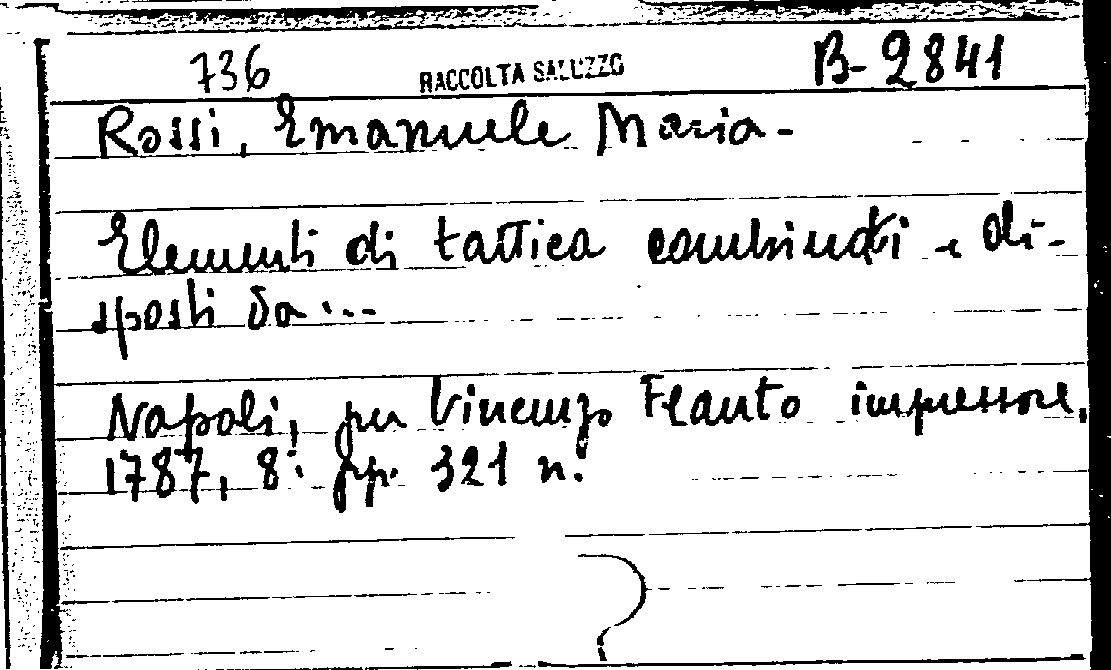 736 RACCOLTA SALUZZO B-2841
Rossi, Emanuele Maria-
Elementi di tattica combinati e di-
sposti da...
Napoli, per Vincenzo Flauto impressore,
1787, 8.° pp. 321 n.